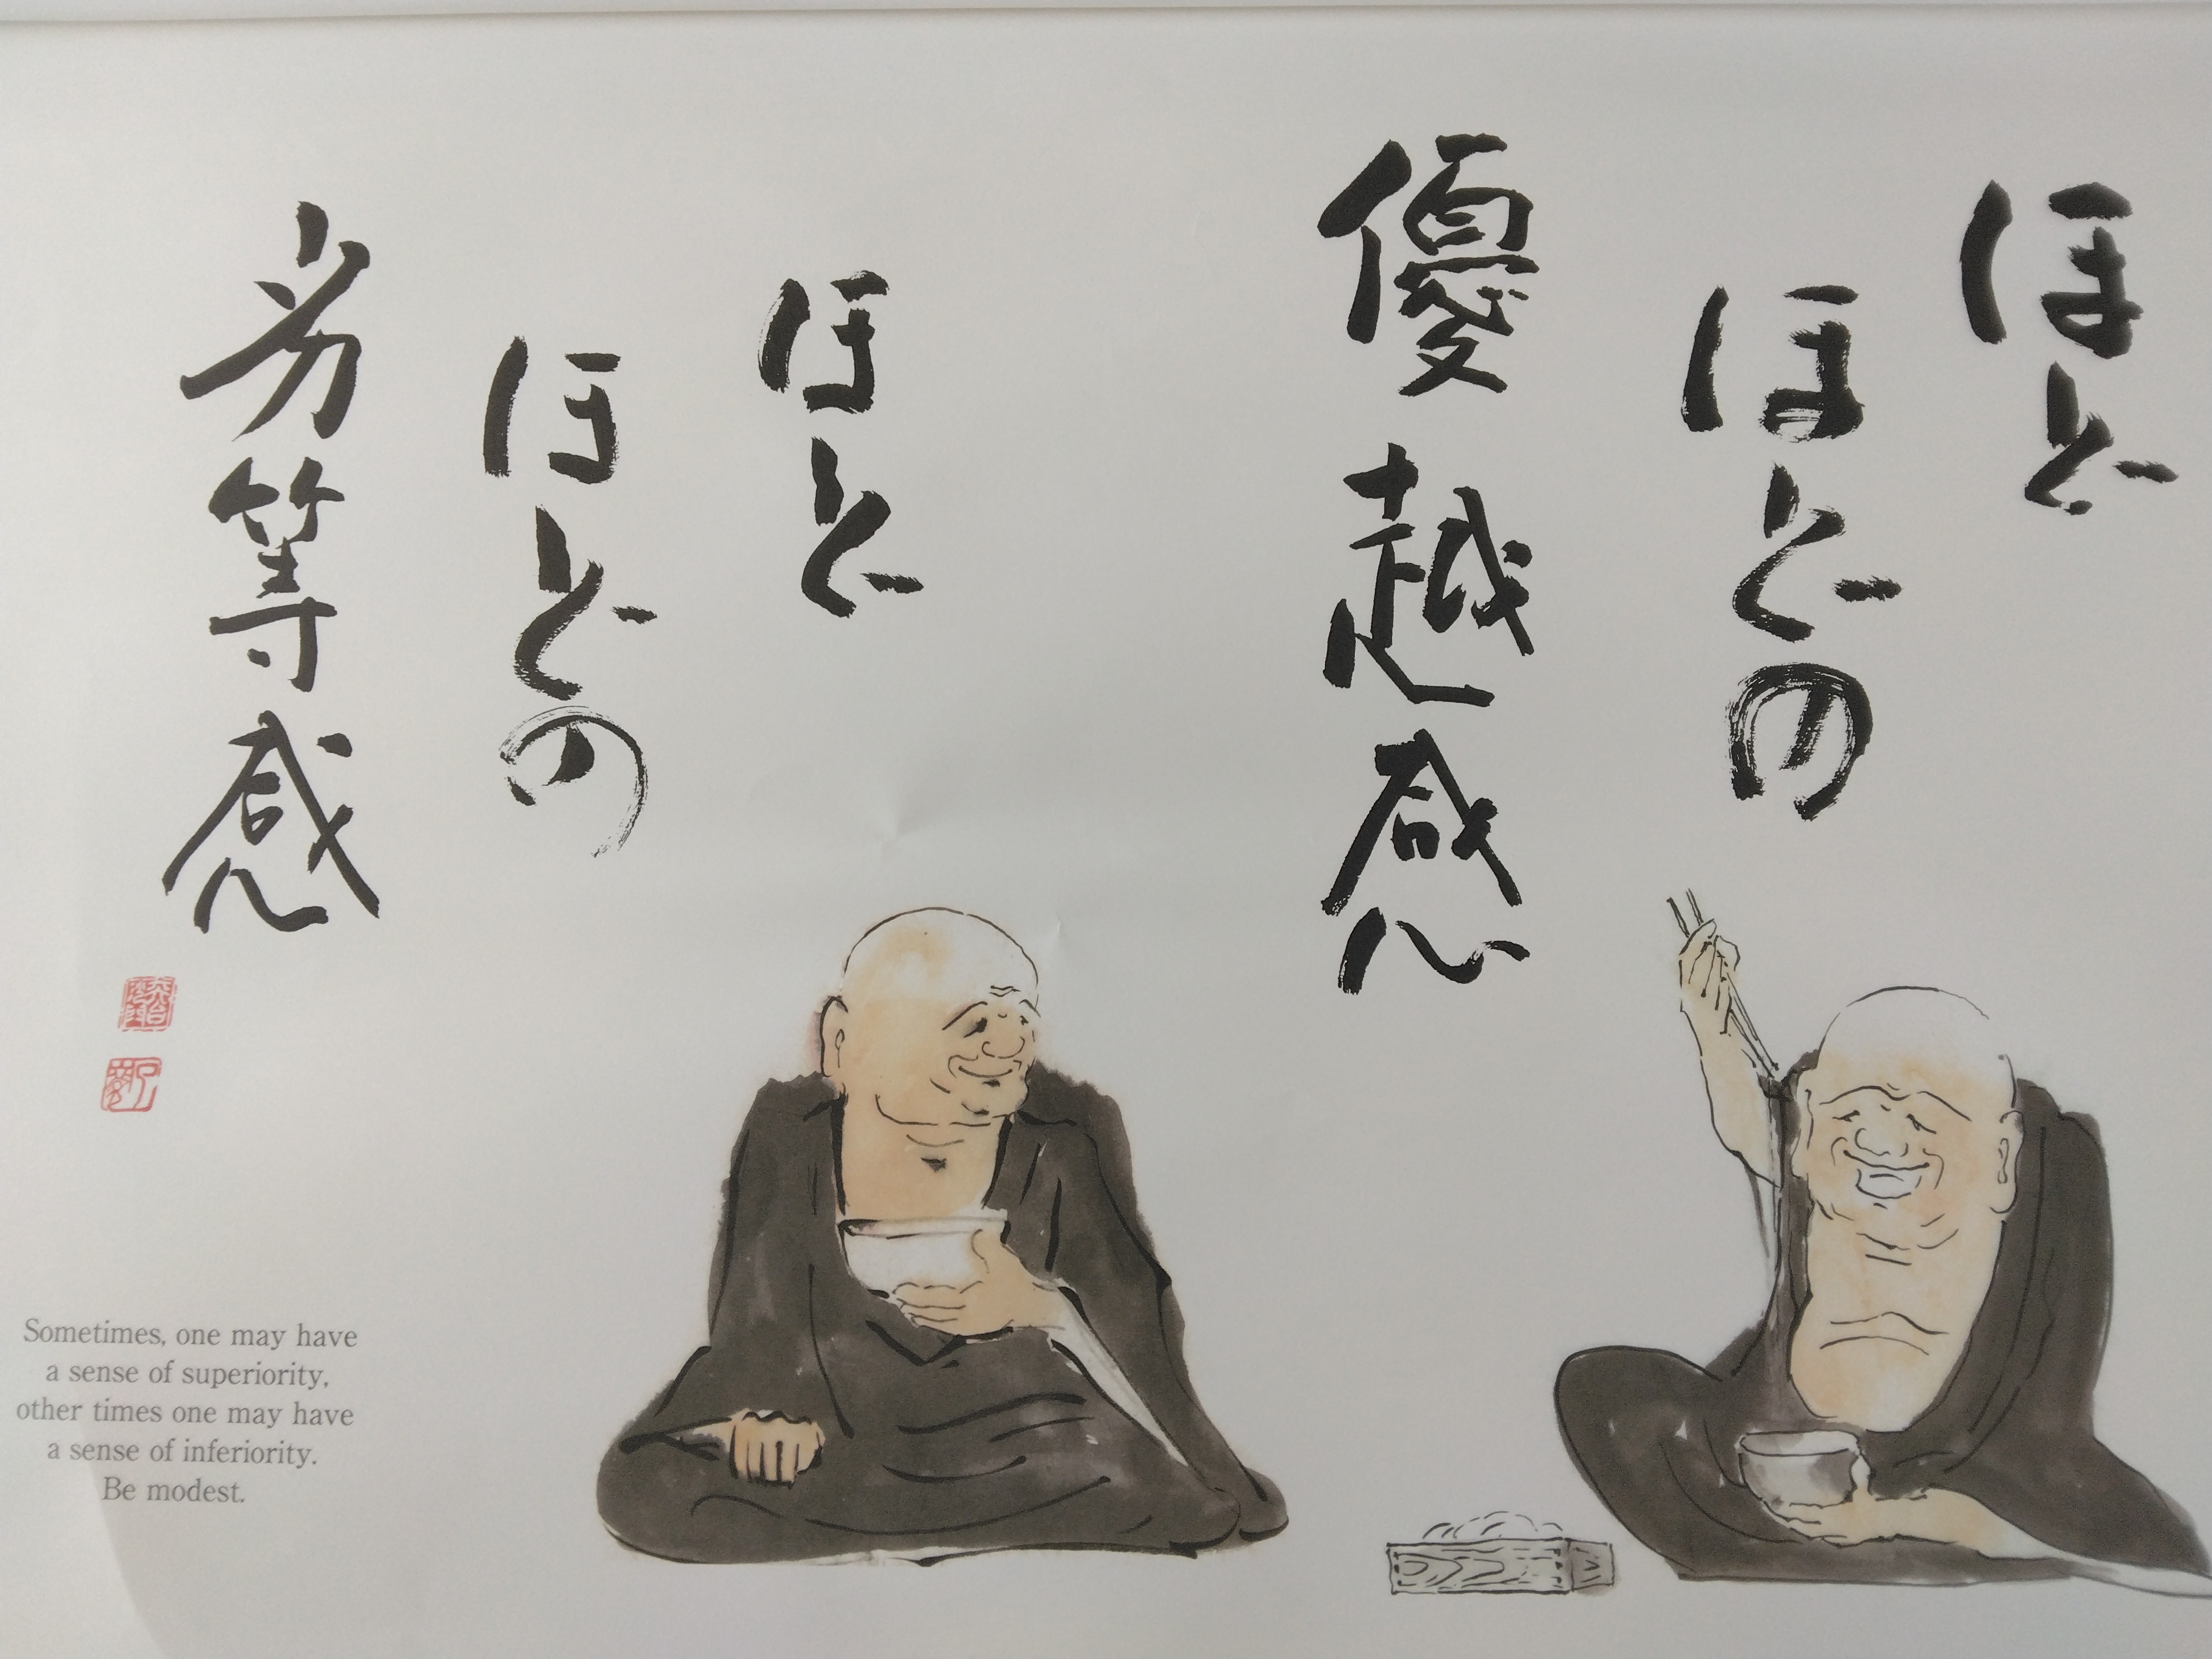 ほど
ほどの
優越感
ほど
ほどの
劣等感
Sometimes, one may have
a sense of superiority,
other times one may have
a sense of inferiority.
Be modest.